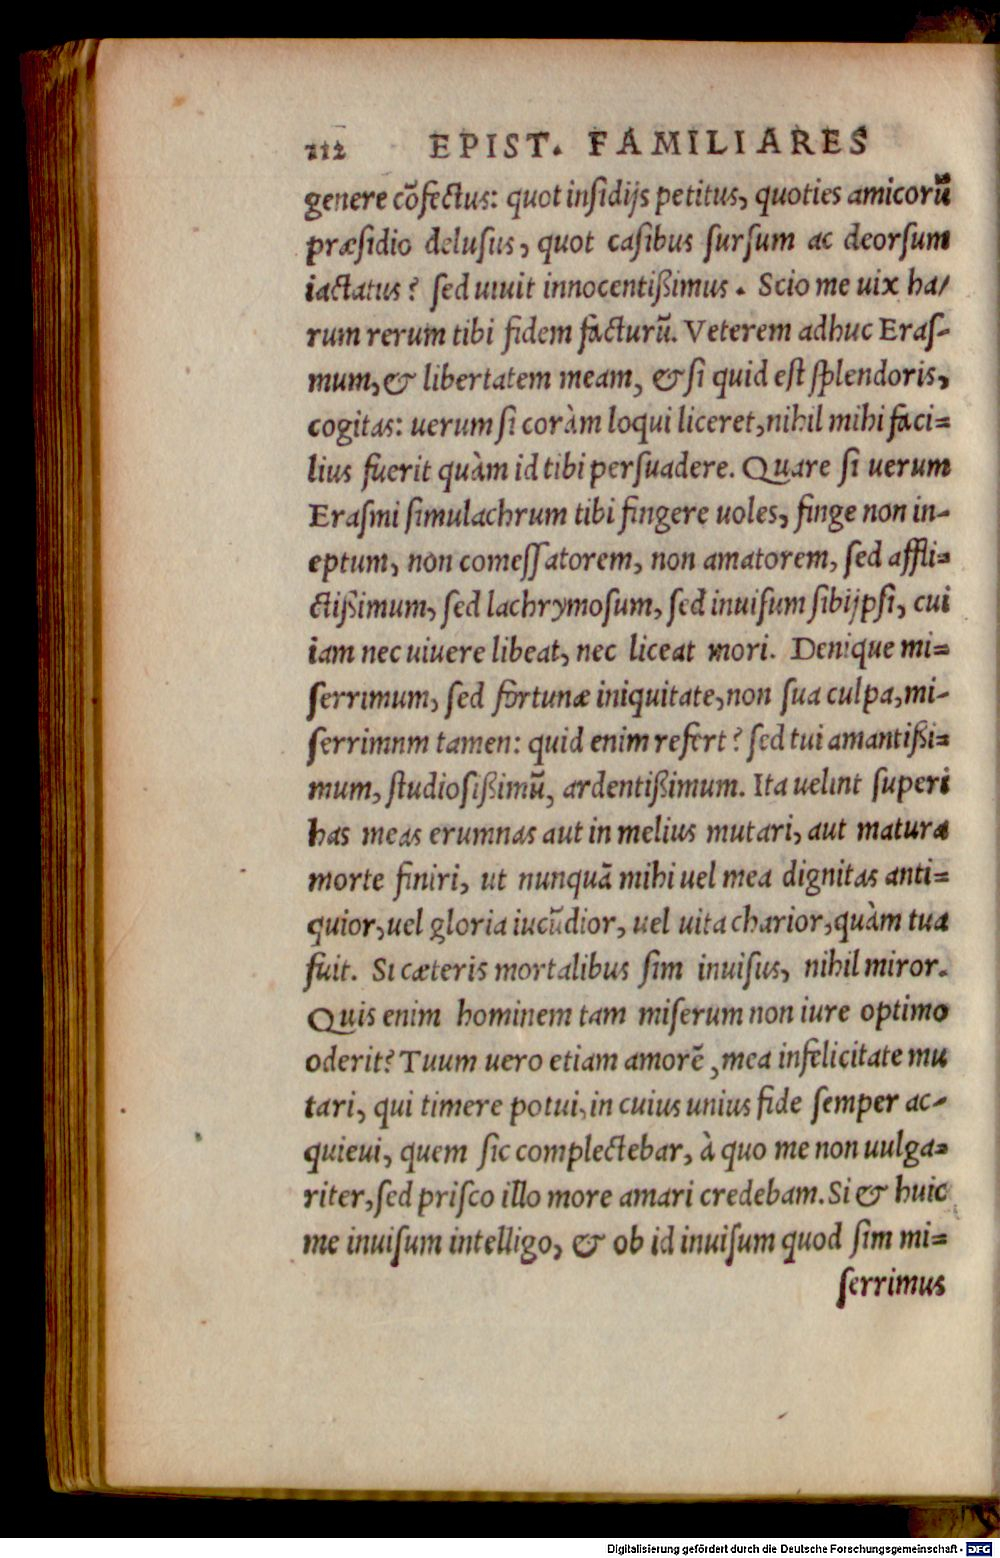 112 EPIST. FAMILIARES
genere cõfectus: quot insidijs petitus, quoties amicorũ
præsidio delusus, quot casibus sursum ac deorsum
iactatus? sed uiuit innocentißimus. Scio me uix ha/
rum rerum tibi fidem facturũ. Veterem adhuc Eras-
mum, & libertatem meam, & si quid est splendoris,
cogitas: uerum si coràm loqui liceret, nihil mihi faci=
lius fuerit quàm id tibi persuadere. Quare si uerum
Erasmi simulachrum tibi fingere uoles, finge non in-
eptum, non comessatorem, non amatorem, sed affli=
ctißimum, sed lachrymosum, sed inuisum sibijpsi, cui
iam nec uiuere libeat, nec liceat mori. Denique mi=
serrimum, sed fortunæ iniquitate, non sua culpa, mi-
serrimnm tamen: quid enim refert? sed tui amantißi=
mum, studiosißimũ, ardentißimum. Ita uelint superi
has meas erumnas aut in melius mutari, aut matura
morte finiri, ut nunquã mihi uel mea dignitas anti=
quior, uel gloria iucũdior, uel uita charior, quàm tua
fuit. Si cæteris mortalibus sim inuisus, nihil miror.
Quis enim hominem tam miserum non iure optimo
oderit? Tuum uero etiam amorẽ, mea infelicitate mu
tari, qui timere potui, in cuius unius fide semper ac-
quieui, quem sic complectebar, à quo me non uulga=
riter, sed prisco illo more amari credebam. Si & huic
me inuisum intelligo, & ob id inuisum quod sim mi=
serrimus
Digitalisierung gefördert durch die Deutsche Forschungsgemeinschaft - DFG